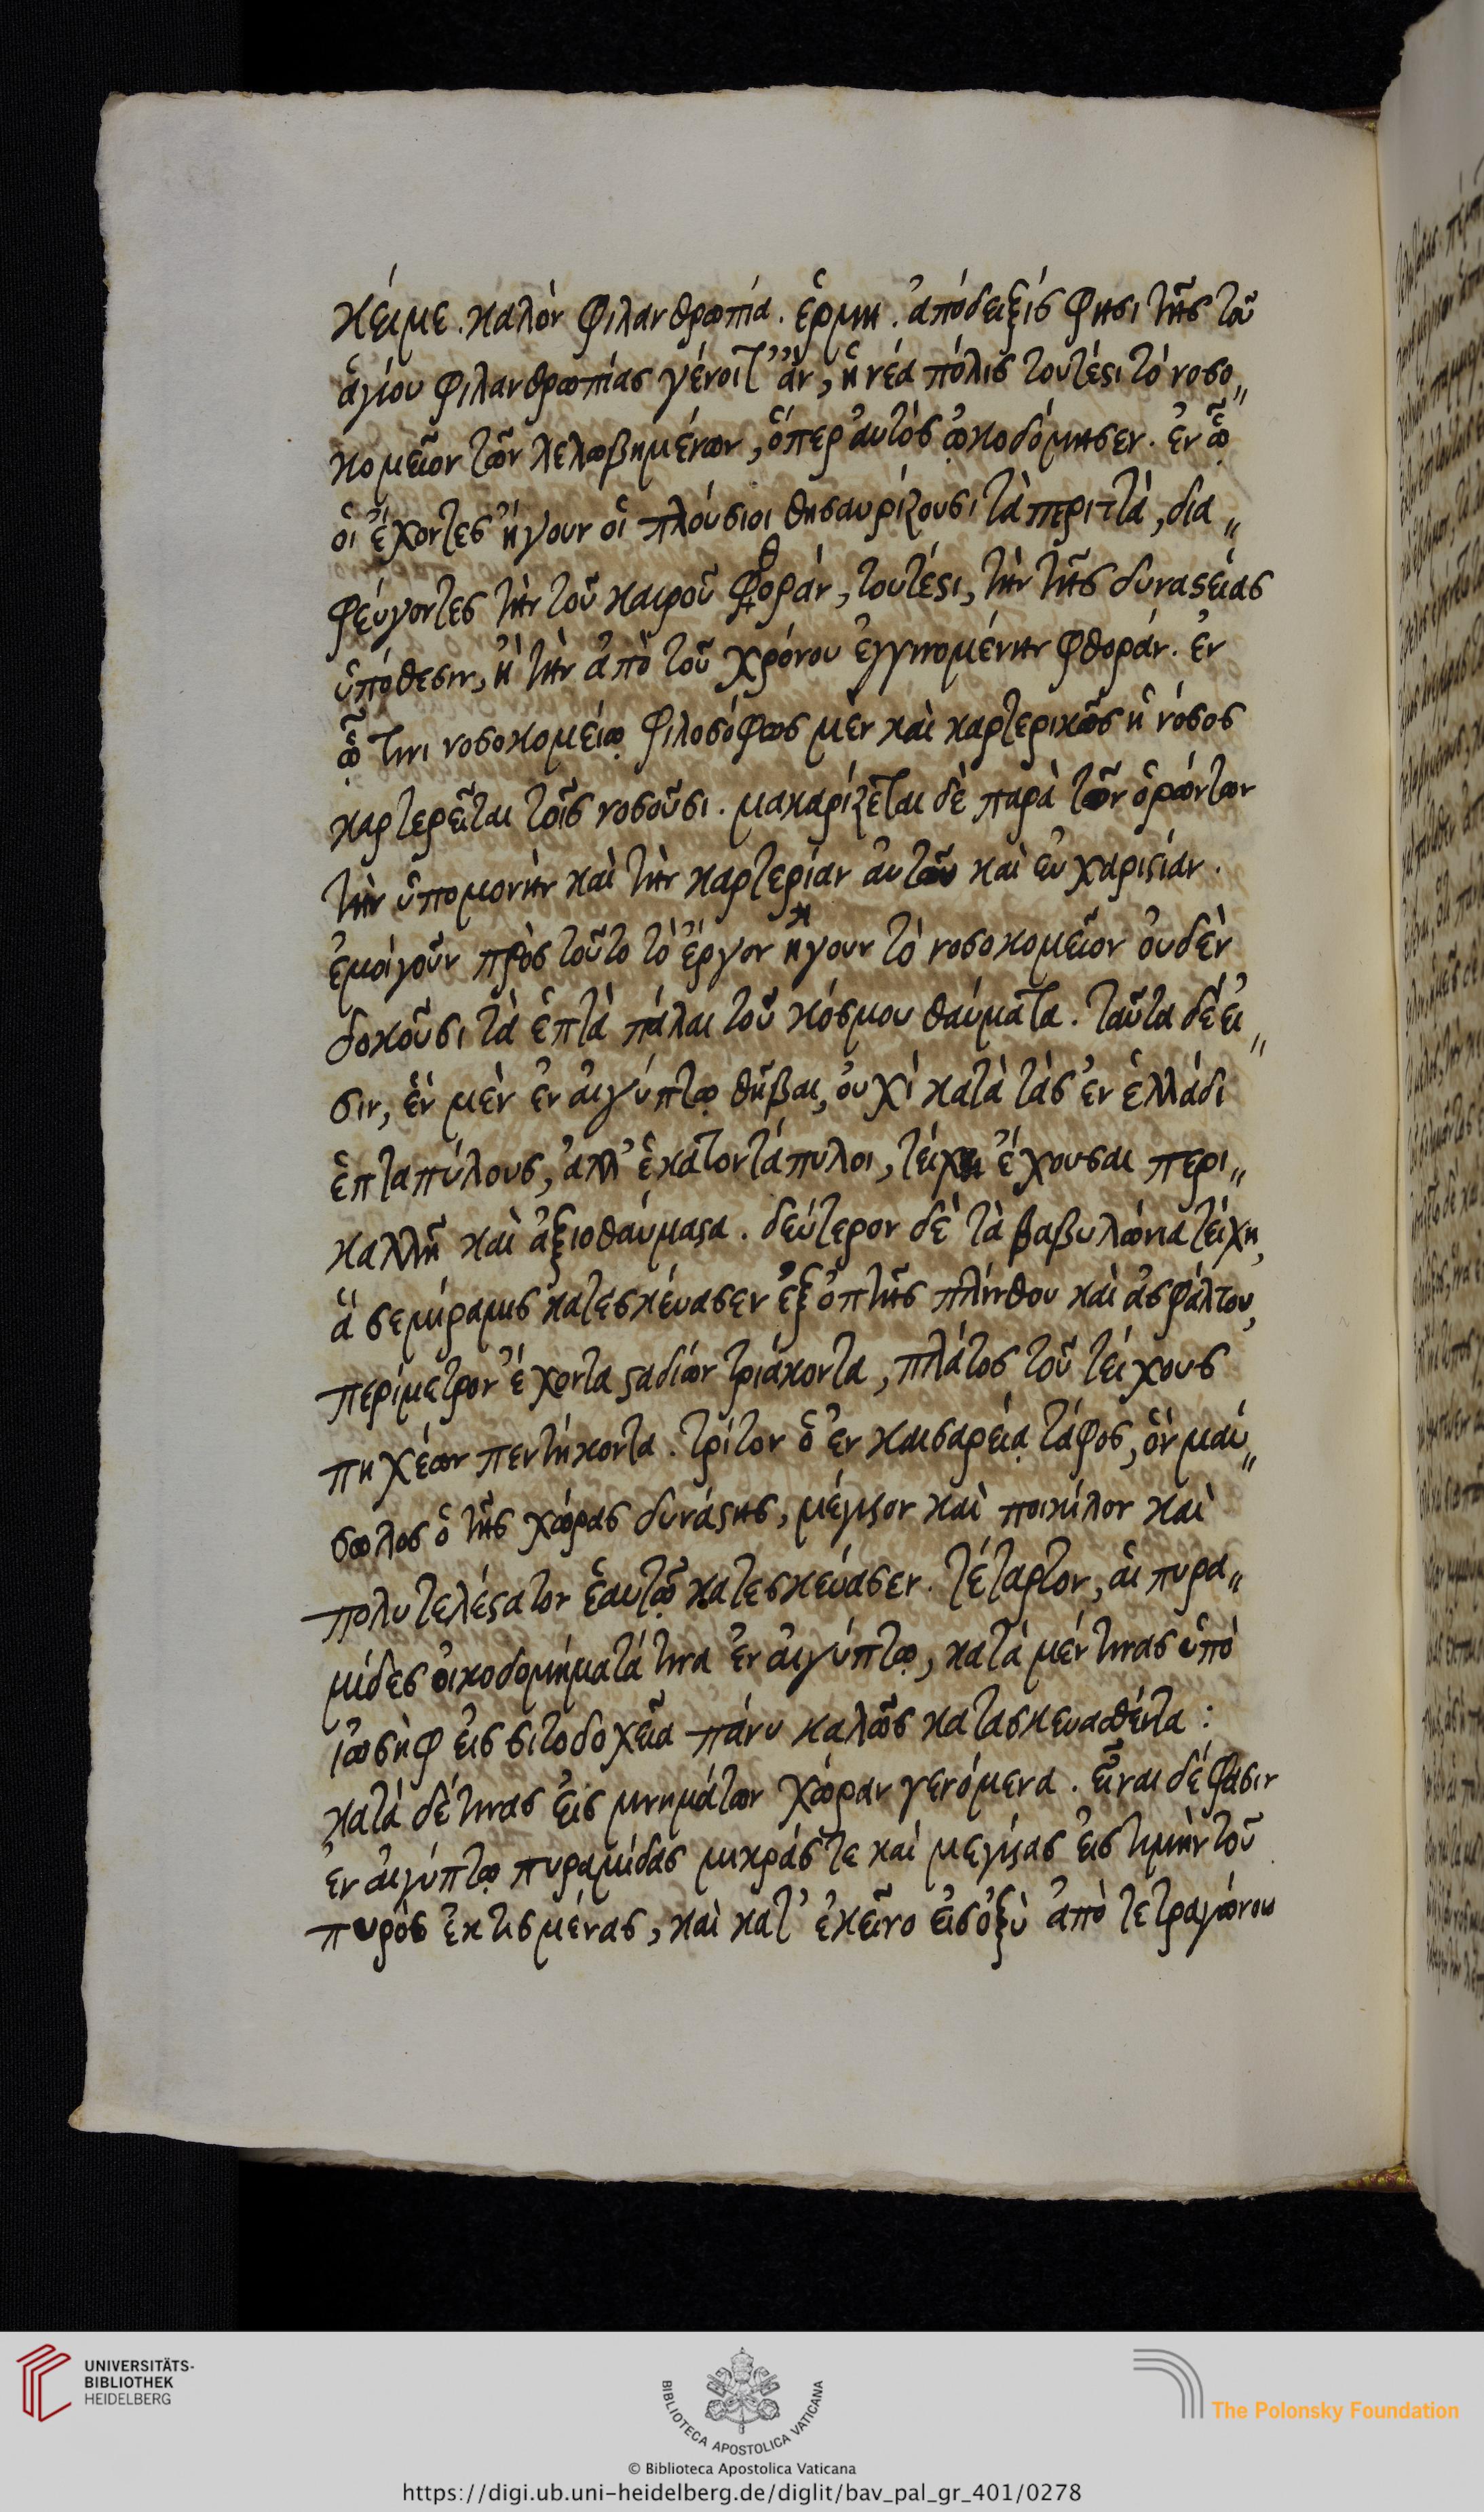 κείμε. καλὸν φιλανθρωπία. ἑρμη. ἀπόδειξίς φησι τῆς τοῦ
ἁγίου φιλανθρωπίας γένοιτ' ἂν, ἡ νέα πόλις τουτέστι τὸ νοσο〃
κομεῖον τῶν λελωβημένων, ὅπερ ἀυτὸς ᾠκοδόμησεν. ἐν ᾧ
ὁι ἔχοντες ἤγουν ὁι πλούσιοι θησαυρίζουσι τὰ περιττά, δια〃
φεύγοντες τὴν τοῦ καιροῦ φθοράν, τουτέστι, τὴν τῆς δυναστείας
ὑπόθεσιν, ἢ τὴν ἀπὸ τοῦ χρόνου ἐγγινομένην φθοράν. ἐν
ᾧ τινι νοσοκομείῳ φιλοσόφως μὲν καὶ καρτερικῶς ἡ νόσος
καρτερεῖται τοῖς νοσοῦσι. μακαρίζεται δὲ παρὰ τῶν ὁρώντων
τὴν ὑπομονὴν καὶ τὴν καρτερίαν ἀυτῶν καὶ ἐυχαριστίαν.
ἐμοίγοῦν πρὸς τοῦτο τὸ ἔργον ἤγουν τὸ νοσοκομεῖον ὀυδὲν
δοκοῦσι τὰ ἑπτὰ πάλαι τοῦ κόσμου θαύματα. ταῦτα δέ ἐι〃
σιν, ἓν μὲν ἐν ἀιγύπτῳ θῆβαι, ὀυχὶ κατὰ τὰς ἐν ἑλλάδι
ἑπταπύλους, ἀλλ' ἑκατοντάπυλοι, τείχη ἔχουσαι περι〃
καλλῆ καὶ ἀξιοθαύμαστα. δεύτερον δὲ τὰ βαβυλώνια τείχη,
ἃ σεμίραμις κατεσκέυασεν ἐξ ὀπτῆς πλίνθου καὶ ἀσφάλτου,
περίμετρον ἔχοντα σταδίων τριάκοντα, πλάτος τοῦ τείχους
πηχέων πεντήκοντα. τρίτον ὁ ἐν καισαρείᾳ τάφος, ὃν μαύ〃
σωλος ὁ τῆς χώρας δυνάστης, μέγιστον καὶ ποικίλον καὶ
πολυτελέστατον ἑαυτῷ κατεσκεύασεν. τέταρτον, ἁι πυρα〃
μίδες ὀικοδομήματά τινα ἐν ἀιγύπτῳ, κατὰ μέν τινας ὑπὸ
ἰωσὴφ ἐις σιτοδοχεῖα πάνυ καλῶς κατασκευασθέντα:
κατὰ δέ τινας ἐις μνημάτων χώραν γενόμενα. εἶναι δέ φασιν
ἐν ἀιγύπτῳ πυραμίδας μικράς τε καὶ μεγίστας ἐις τιμὴν τοῦ
πυρὸς ἐκτισμένας, καὶ κατ' ἐκεῖνο ἐις ὀξὺ ἀπὸ τετραγώνου
UNIVERSITÄTS-
BIBLIOTHEK
HEIDELBERG
BIBLIOTECA APOSTOLICA VATICANA
The Polonsky Foundation
© Biblioteca Apostolica Vaticana
https://digi.ub.uni-heidelberg.de/diglit/bav_pal_gr_401/0278